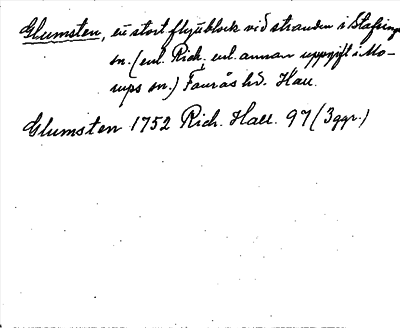 Glumsten, ett stort flyttblock vid stranden i Stafsinge
sn. (enl. Rich, enl. annan uppgift i Mo-
rups sn.) Faurås hd. Hall.
Glumsten 1752 Rich. Hall. 97 (3ggr.)